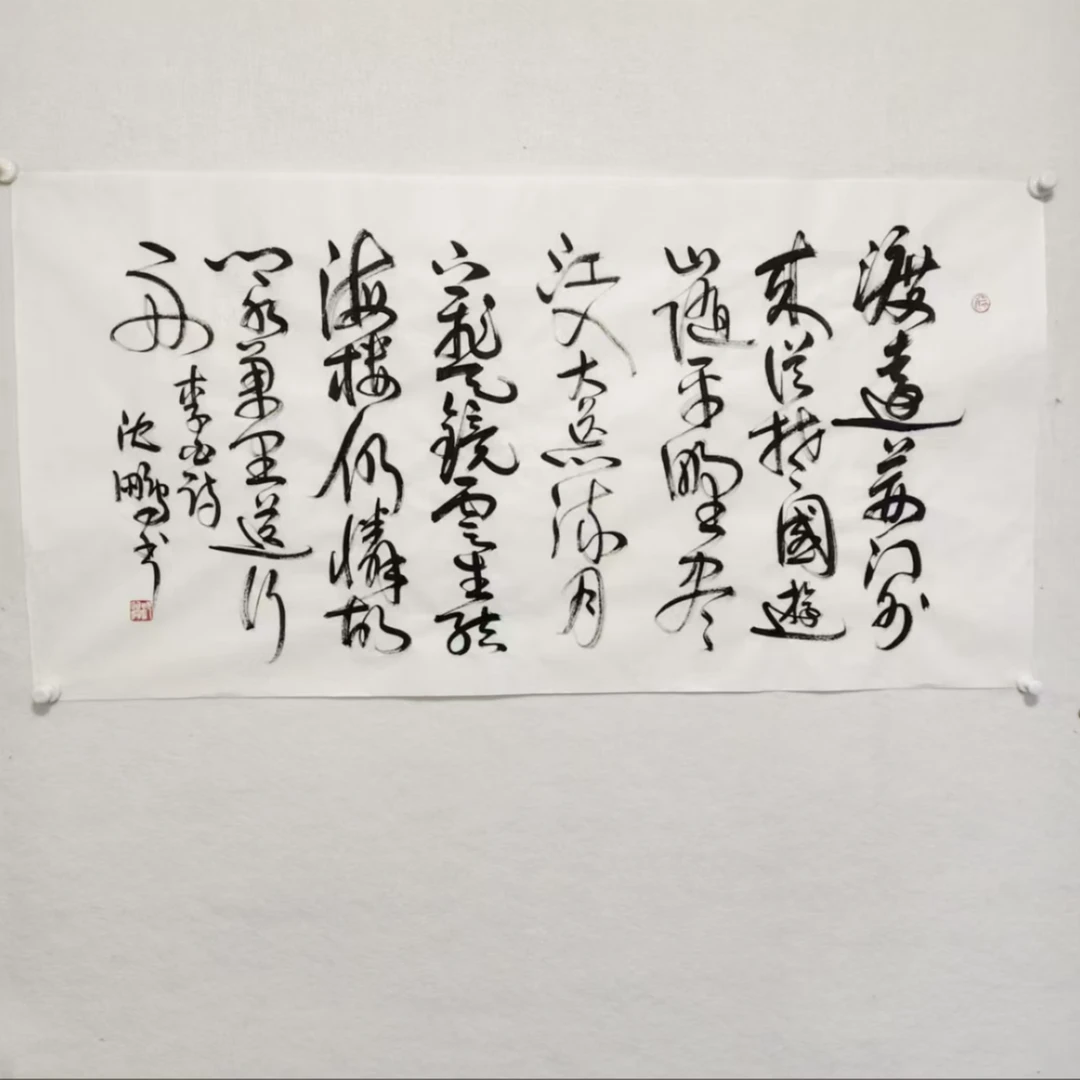 渡遠荆门外
来從楚國遊
山随平野尽
江入大荒流月
下飛天鏡雲生结
海楼仍憐故
鄉水萬里送行
舟
李白詩
沈鵬书